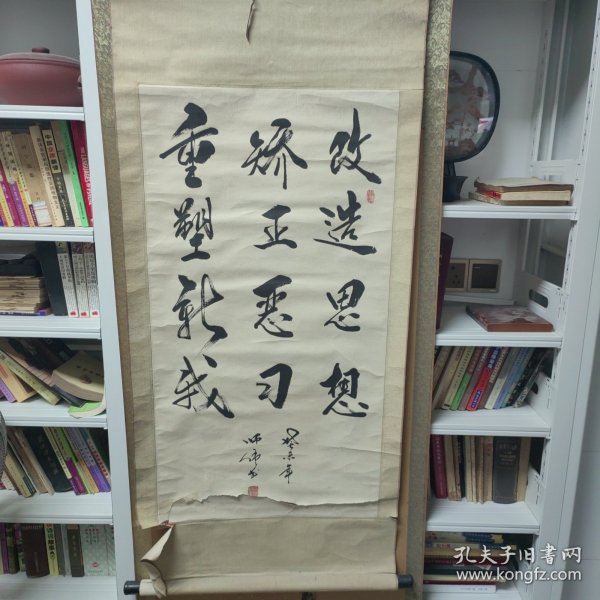 改造思想
矫正恶习
重塑新我
癸未年
孔夫子旧书网
www.kongfz.com